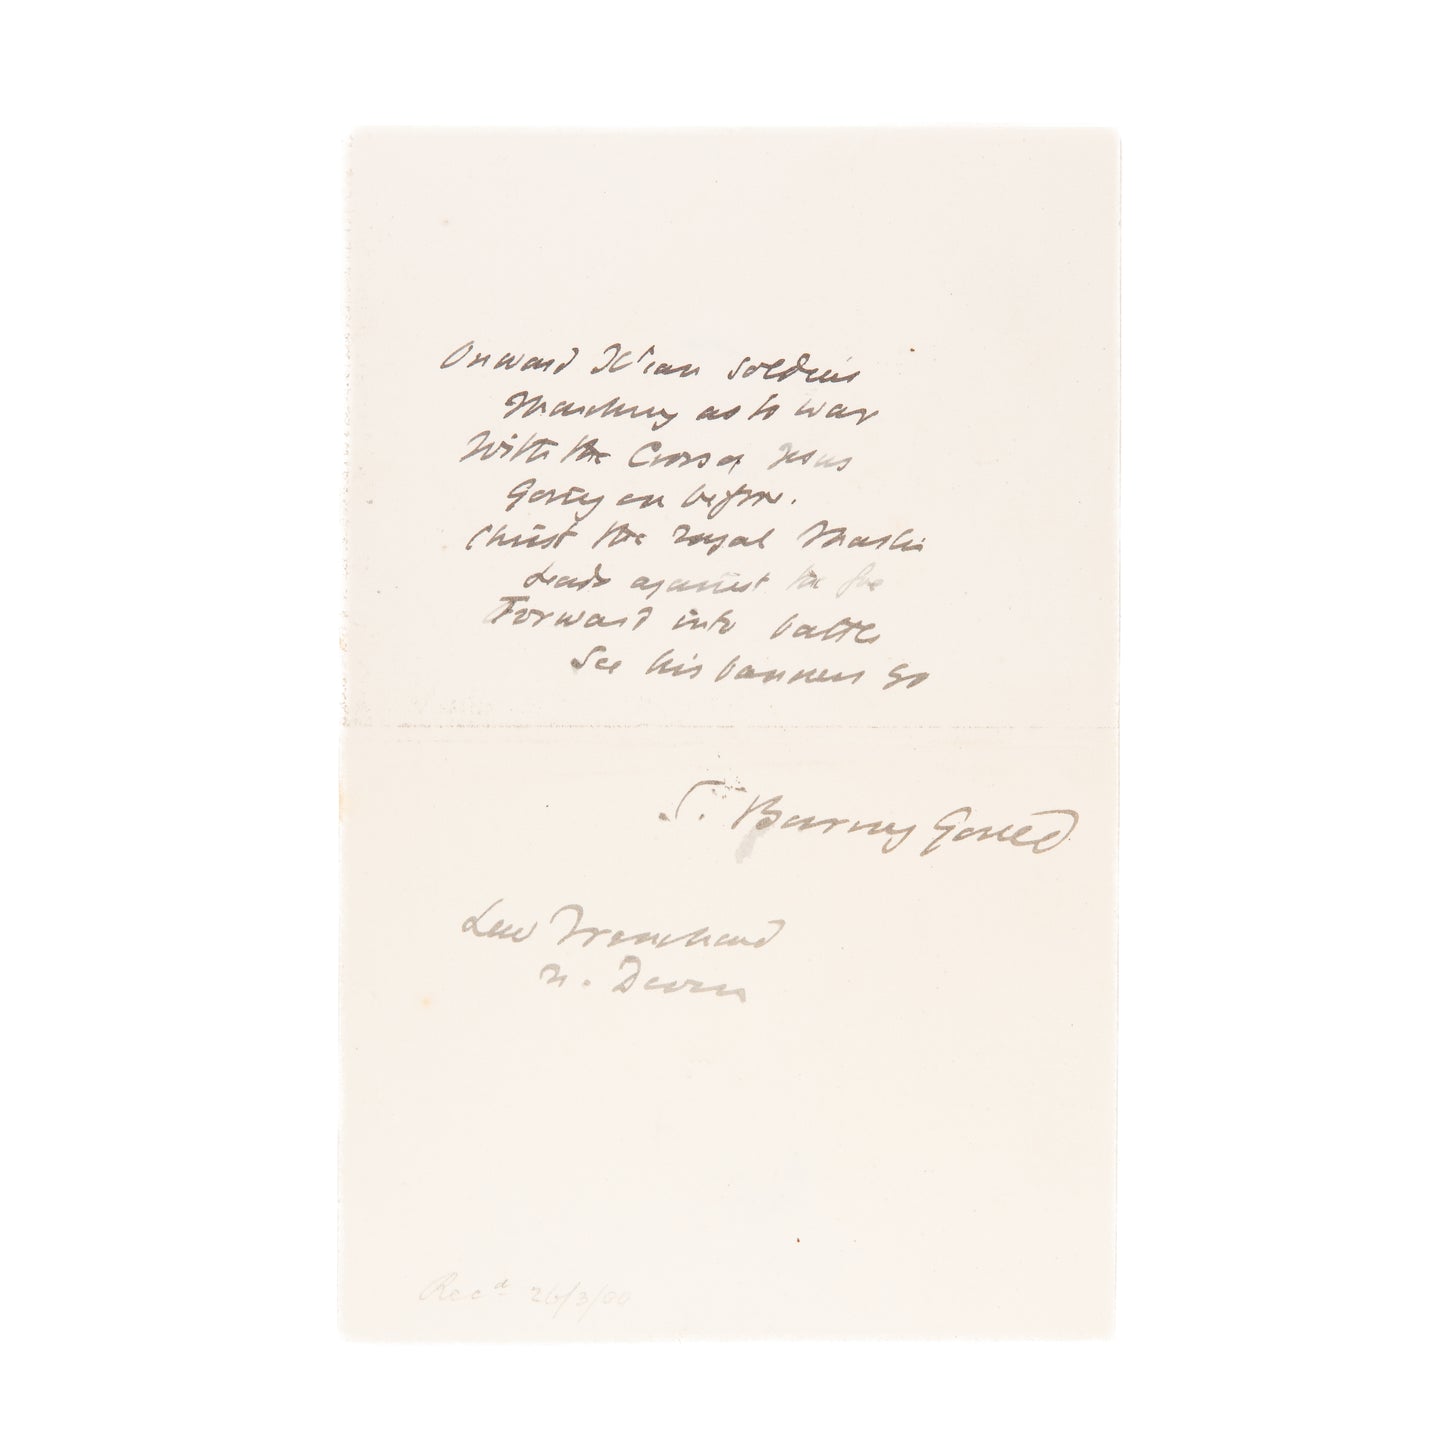 Onward Xtian soldiers
Marching as to war
With the Cross of Jesus
Going on before.
Christ the royal Master
Leads against the foe
Forward into battle
See his banners go
S. Baring Gould
Lew Trenchard
N. Devon
Recd 26/3/00